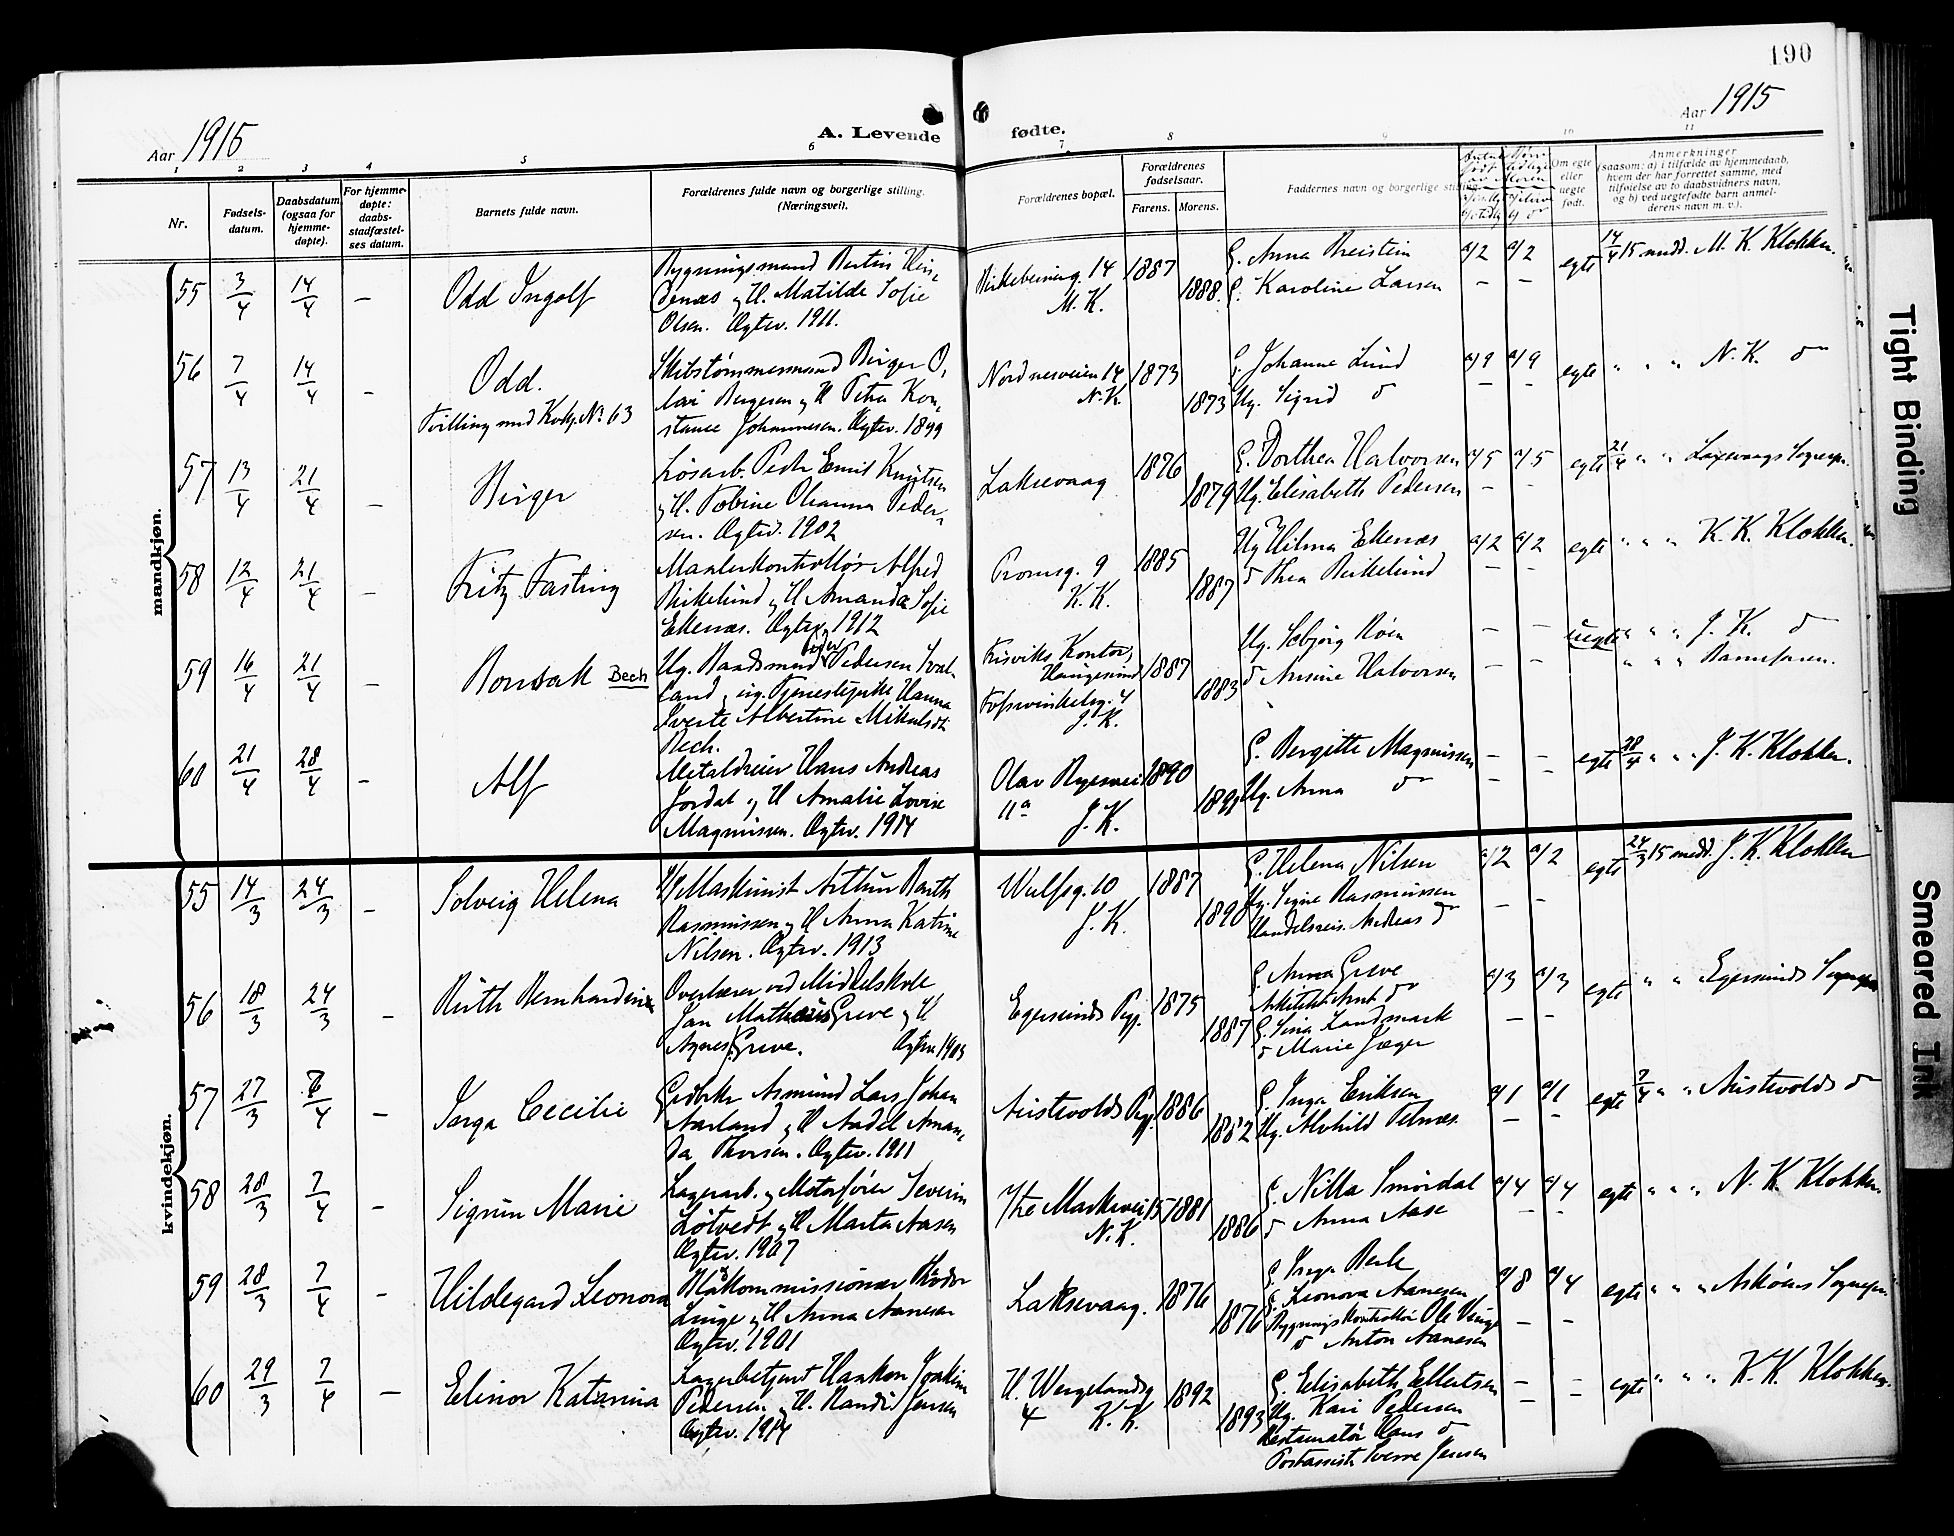 190
Aar 1915
A. Levende
fødte.
Aar 1915
1 2 3 4 5 6 7 8 9 10 11
Nr.
Fødsels-
datum.
Daabsdatum
(ogsaa for
hjemme-
døpte).
For hjemme-
døpte:
daabs-
stadfæstel-
ses datum.
Barnets fulde navn.
Forældrenes fulde navn og borgerlige stilling.
(Næringsvei).
Forældrenes bopæl.
Forældrenes
fødselsaar.
Farens.
Morens.
Faddernes navn og borgerlige stilling.
Om egte
eller
uegte
født.
Anmerkninger
(saasom: a) i tilfælde av hjemmedaab,
hvem der har forrettet samme, med
tilføielse av to daabsvidners navn,
og b) ved uegtefødte barn anmel-
derens navn m. v.).
mandkjøn.
55 3/4 14/4 – Odd Ingolf
Bygningsmand Bertin Hin-
denæs og H. Matilde Sofie
Olsen. Egtev. 1911.
Birkebeinerg. 14
M. K.
1887
1888
G. Anna Breistein
G. Karoline Larsen
a/2 a/2
– –
egte
14/4 15 medd. M. K. Klokker.
56 7/4 14/4 – Odd.
Tvilling med Kvkj. No 63
Skibstømmermand Birger O-
lai Børgesen og H Petra Kon-
stance Johannesen. Egtev. 1899
Nordnesveien 14
N. K.
1873
1873
G. Johanne Lund
Ug. Sigrid do
a/9 a/9
– –
egte
" " " N. K. do
57 13/4 21/4 – Birger
Løsarb. Peder Emil Knutsen
og H. Tobine Oleanna Peder-
sen. Egtev. 1902
Laksevaag
1876
1879
G. Dorthea Halvorsen
Ug. Elisabeth Pedersen
a/5 a/5
– –
egte
21/4 " " Laxevaags Sognepr.
58 12/4 21/4 – Fritz Fasting
Maalerkontrollør Alfred
Birkelund og H Amanda Sofie
Ekenæs. Egtev. 1912
Promsg. 9
K. K.
1885
1887
Ug Hilma Ekenæs
do Thea Birkelund
a/2 a/2
– –
egte
" " " K. K. Klokker.
59 16/4 21/4 – Bonsak Bech
Ug. Baadsmand Peder Pedersen Sval-
land og ug. Tjenestepike Hanna
Sverte Albertine Mikalsdt.
Bech.
Frisviks Kontor,
Haugesund
Fosswinkelsg. 4
J. K.
1887
1883
Ug. Sebjørg Røen
do Ansine Halvorsen
– –
– –
uegte
" " " J. K. do
" " " Barnefaren.
60 21/4 28/4 – Alf
Metaldreier Hans Andreas
Jordal og H Amalie Lovise
Magnussen. Egtev. 1914
Olav Ryesvei
11a
J. K.
1890
1891
G. Bergitte Magnussen
Ug. Anna do
– –
– –
egte
28/4 " " J. K. Klokker.
kvindekjøn.
55 14/3 24/3 – Solveig Helena
Maskinist Arthur Barth
Rasmussen og H Anna Katrine
Nilsen. Egtev. 1913
Wulfsg. 10
J. K.
1887
1890
G. Helena Nilsen
Ug. Signe Rasmussen
Handelsreis. Andreas do
a/2 a/2
– –
egte
24/3 15 medd. J. K. Klokker
56 18/3 24/3 – Ruth Bernhardine
Overlærer ved Middelskole
Jan Mathæus Greve og H
Agnes Greve. Egtev 1903
Egersunds Pgj.
1875
1887
G. Anna Greve
Arkitekt Arnt do
G. Lina Landmark
do Marie Jæger
a/3 a/3
– –
egte
" " Egersunds Sognepr.
57 27/3 7/4 – Inga Cecilie
Gedbrker Asmund Lars Johan
Aarland og H Aadel Aman-
da Thorsen. Egtev. 1911
Austevolds Pgj.
1886
1882
G. Inga Eriksen
Ug. Alvhild Telnæs.
a/1 a/1
– –
egte
7/4 " " Austevolds do
58 28/3 7/4 – Sigrun Marie
Lagerarb. og Motorfører Severin
Løtvedt og H Marta Aasen
Egtev. 1907
Ytre Markevei 15
N. K.
1881
1886
G. Nilla Smørdal
do Anna Aase
a/4 a/4
– –
egte
" " " N. K Klokker.
59 28/3 7/4 – Hildegard Leonora
Linge og H Anna Aanesen
Egtev. 1901
Laksevaag.
1876
1876
G. Inga Berle
G. Leonora Aanesen
Bygningskontrollør Ole Linge
do Anton Aanesen
a/8 a/4
– –
egte
" " " Askøens Sognepr.
60 29/3 7/4 – Elinor Katarina
Lagerbetjent Haakon Joakim
Pedersen og H. Randi Jensen
Egtev. 1914
H. Wergelandsg
4 K. K.
1892
1893
G. Elisabeth Ellertsen
Ug. Kari Pedersen
Restauratør Hans do
Postassist. Sverre Jensen
– –
– –
egte
" " " K. K. Klokker.
Tight Binding
Smeared Ink